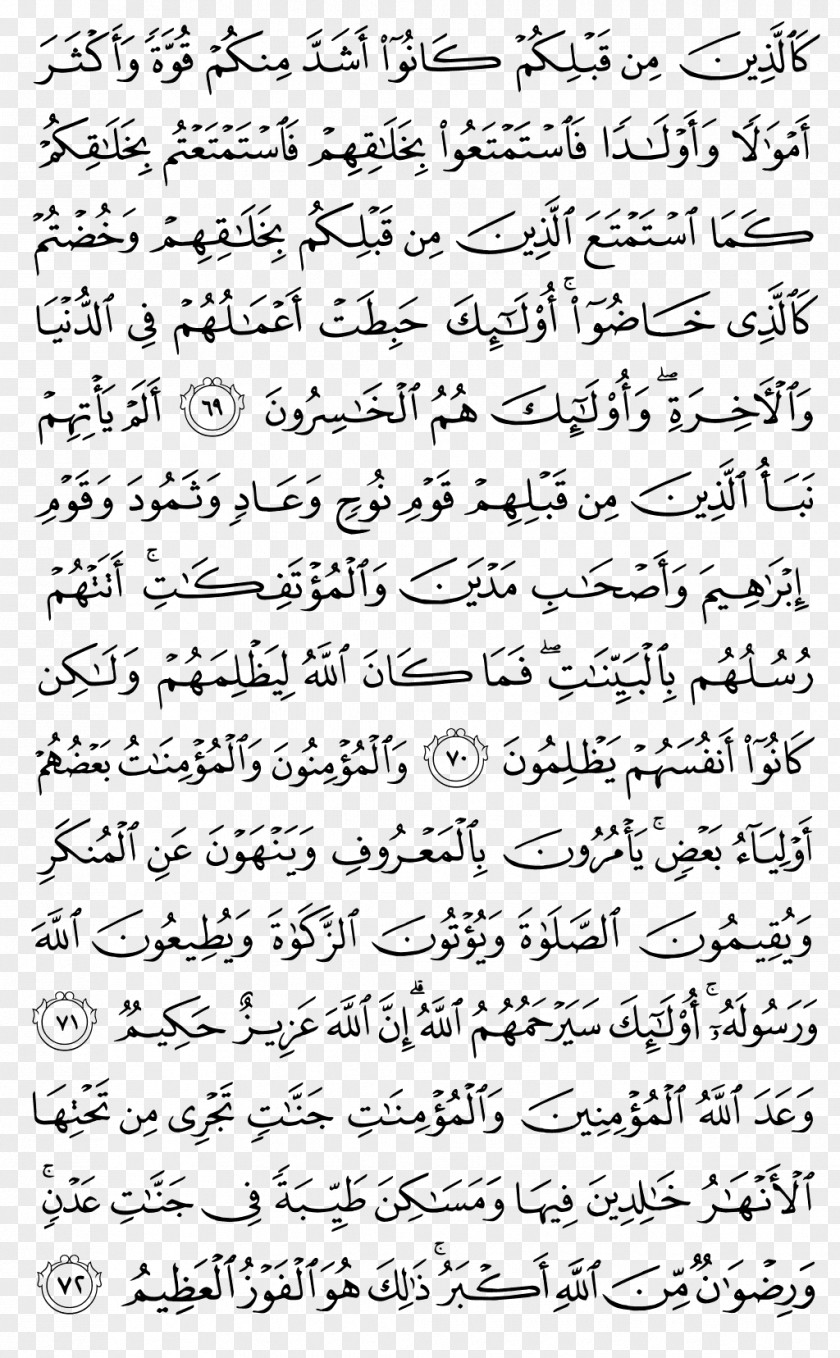 كَٱلَّذِينَ مِن قَبْلِكُمْ كَانُوٓا۟ أَشَدَّ مِنكُمْ قُوَّةً وَأَكْثَرَ
أَمْوَٰلًا وَأَوْلَٰدًا فَٱسْتَمْتَعُوا۟ بِخَلَٰقِهِمْ فَٱسْتَمْتَعْتُم بِخَلَٰقِكُمْ
كَمَا ٱسْتَمْتَعَ ٱلَّذِينَ مِن قَبْلِكُم بِخَلَٰقِهِمْ وَخُضْتُمْ
كَٱلَّذِى خَاضُوٓا۟ ۚ أُو۟لَٰٓئِكَ حَبِطَتْ أَعْمَٰلُهُمْ فِى ٱلدُّنْيَا
وَٱلْأَخِرَةِ ۖ وَأُو۟لَٰٓئِكَ هُمُ ٱلْخَٰسِرُونَ ٦٩ أَلَمْ يَأْتِهِمْ
نَبَأُ ٱلَّذِينَ مِن قَبْلِهِمْ قَوْمِ نُوحٍ وَعَادٍ وَثَمُودَ وَقَوْمِ
إِبْرَٰهِيمَ وَأَصْحَٰبِ مَدْيَنَ وَٱلْمُؤْتَفِكَٰتِ ۚ أَتَتْهُمْ
رُسُلُهُم بِٱلْبَيِّنَٰتِ ۖ فَمَا كَانَ ٱللَّهُ لِيَظْلِمَهُمْ وَلَٰكِن
كَانُوٓا۟ أَنفُسَهُمْ يَظْلِمُونَ ٧٠ وَٱلْمُؤْمِنُونَ وَٱلْمُؤْمِنَٰتُ بَعْضُهُمْ
أَوْلِيَآءُ بَعْضٍ ۚ يَأْمُرُونَ بِٱلْمَعْرُوفِ وَيَنْهَوْنَ عَنِ ٱلْمُنكَرِ
وَيُقِيمُونَ ٱلصَّلَوٰةَ وَيُؤْتُونَ ٱلزَّكَوٰةَ وَيُطِيعُونَ ٱللَّهَ
وَرَسُولَهُۥٓ ۚ أُو۟لَٰٓئِكَ سَيَرْحَمُهُمُ ٱللَّهُ ۗ إِنَّ ٱللَّهَ عَزِيزٌ حَكِيمٌ ٧١
وَعَدَ ٱللَّهُ ٱلْمُؤْمِنِينَ وَٱلْمُؤْمِنَٰتِ جَنَّٰتٍ تَجْرِى مِن تَحْتِهَا
ٱلْأَنْهَٰرُ خَٰلِدِينَ فِيهَا وَمَسَٰكِنَ طَيِّبَةً فِى جَنَّٰتِ عَدْنٍ ۚ
وَرِضْوَٰنٌ مِّنَ ٱللَّهِ أَكْبَرُ ۚ ذَٰلِكَ هُوَ ٱلْفَوْزُ ٱلْعَظِيمُ ٧٢